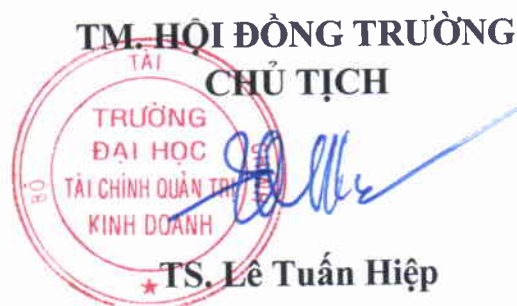 TM. HỘI ĐỒNG TRƯỜNG
CHỦ TỊCH
BỘ
TÀI
TRƯỜNG
ĐẠI HỌC
TÀI CHÍNH QUẢN TRỊ
KINH DOANH
TS. Lê Tuấn Hiệp